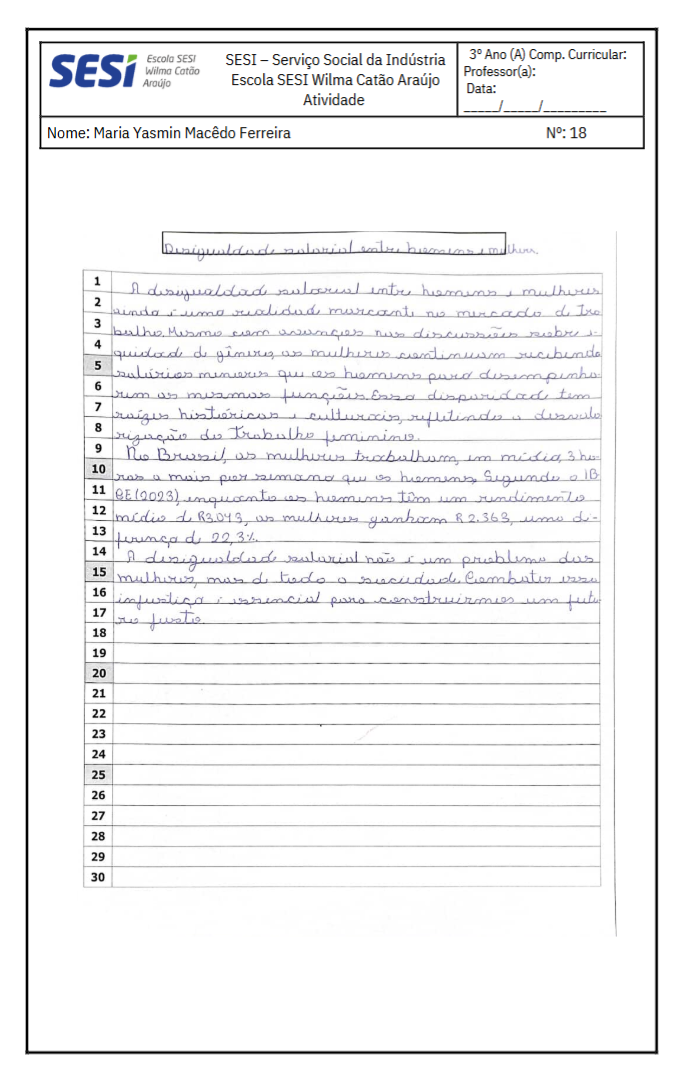 SESI Escola SESI
Wilma Catão
Araújo
SESI – Serviço Social da Indústria
Escola SESI Wilma Catão Araújo
Atividade
3º Ano (A) Comp. Curricular:
Professor(a):
Data:
_____/_____/_________
Nome: Maria Yasmin Macêdo Ferreira Nº: 18
Desigualdade salarial entre homens e mulheres.
1 A desigualdade salarial entre homens e mulheres
2 ainda é uma realidade marcante no mercado de tra
3 balho. Mesmo com avanços nas discussões sobre e-
4 quidade de gênero, as mulheres continuam recebendo
5 salários menores que os homens para desempenha-
6 rem as mesmas funções. Essa disparidade tem
7 raízes históricas e culturais, refletindo a desvalo
8 rização do trabalho feminino.
9 No Brasil, as mulheres trabalham, em média, 3 ho
10 ras a mais por semana que os homens. Segundo o IB
11 GE (2023), enquanto os homens têm um rendimento
12 médio de R3.043, as mulheres ganham R2.363, uma di-
13 ferença de 22,3%.
14 A desigualdade salarial não é um problema das
15 mulheres, mas de toda a sociedade. Combater essa
16 injustiça é essencial para construirmos um futu
17 ro justo.
18
19
20
21
22
23
24
25
26
27
28
29
30